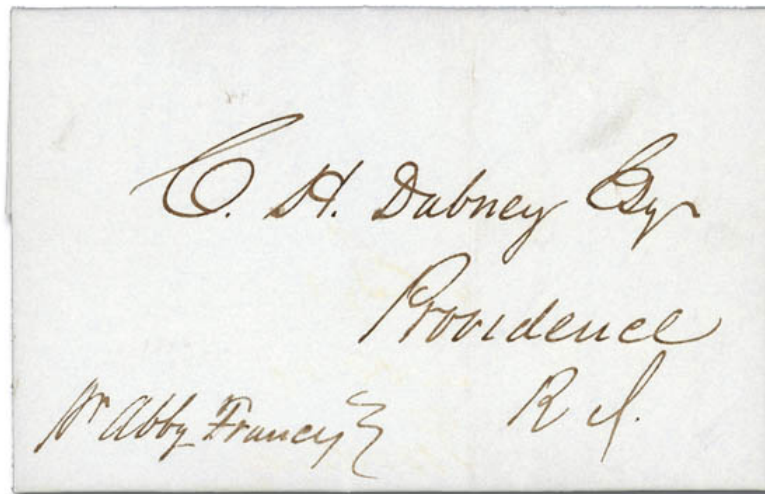 C. H. Dabney Esqr
Providence
R I.
pr Abby Francis